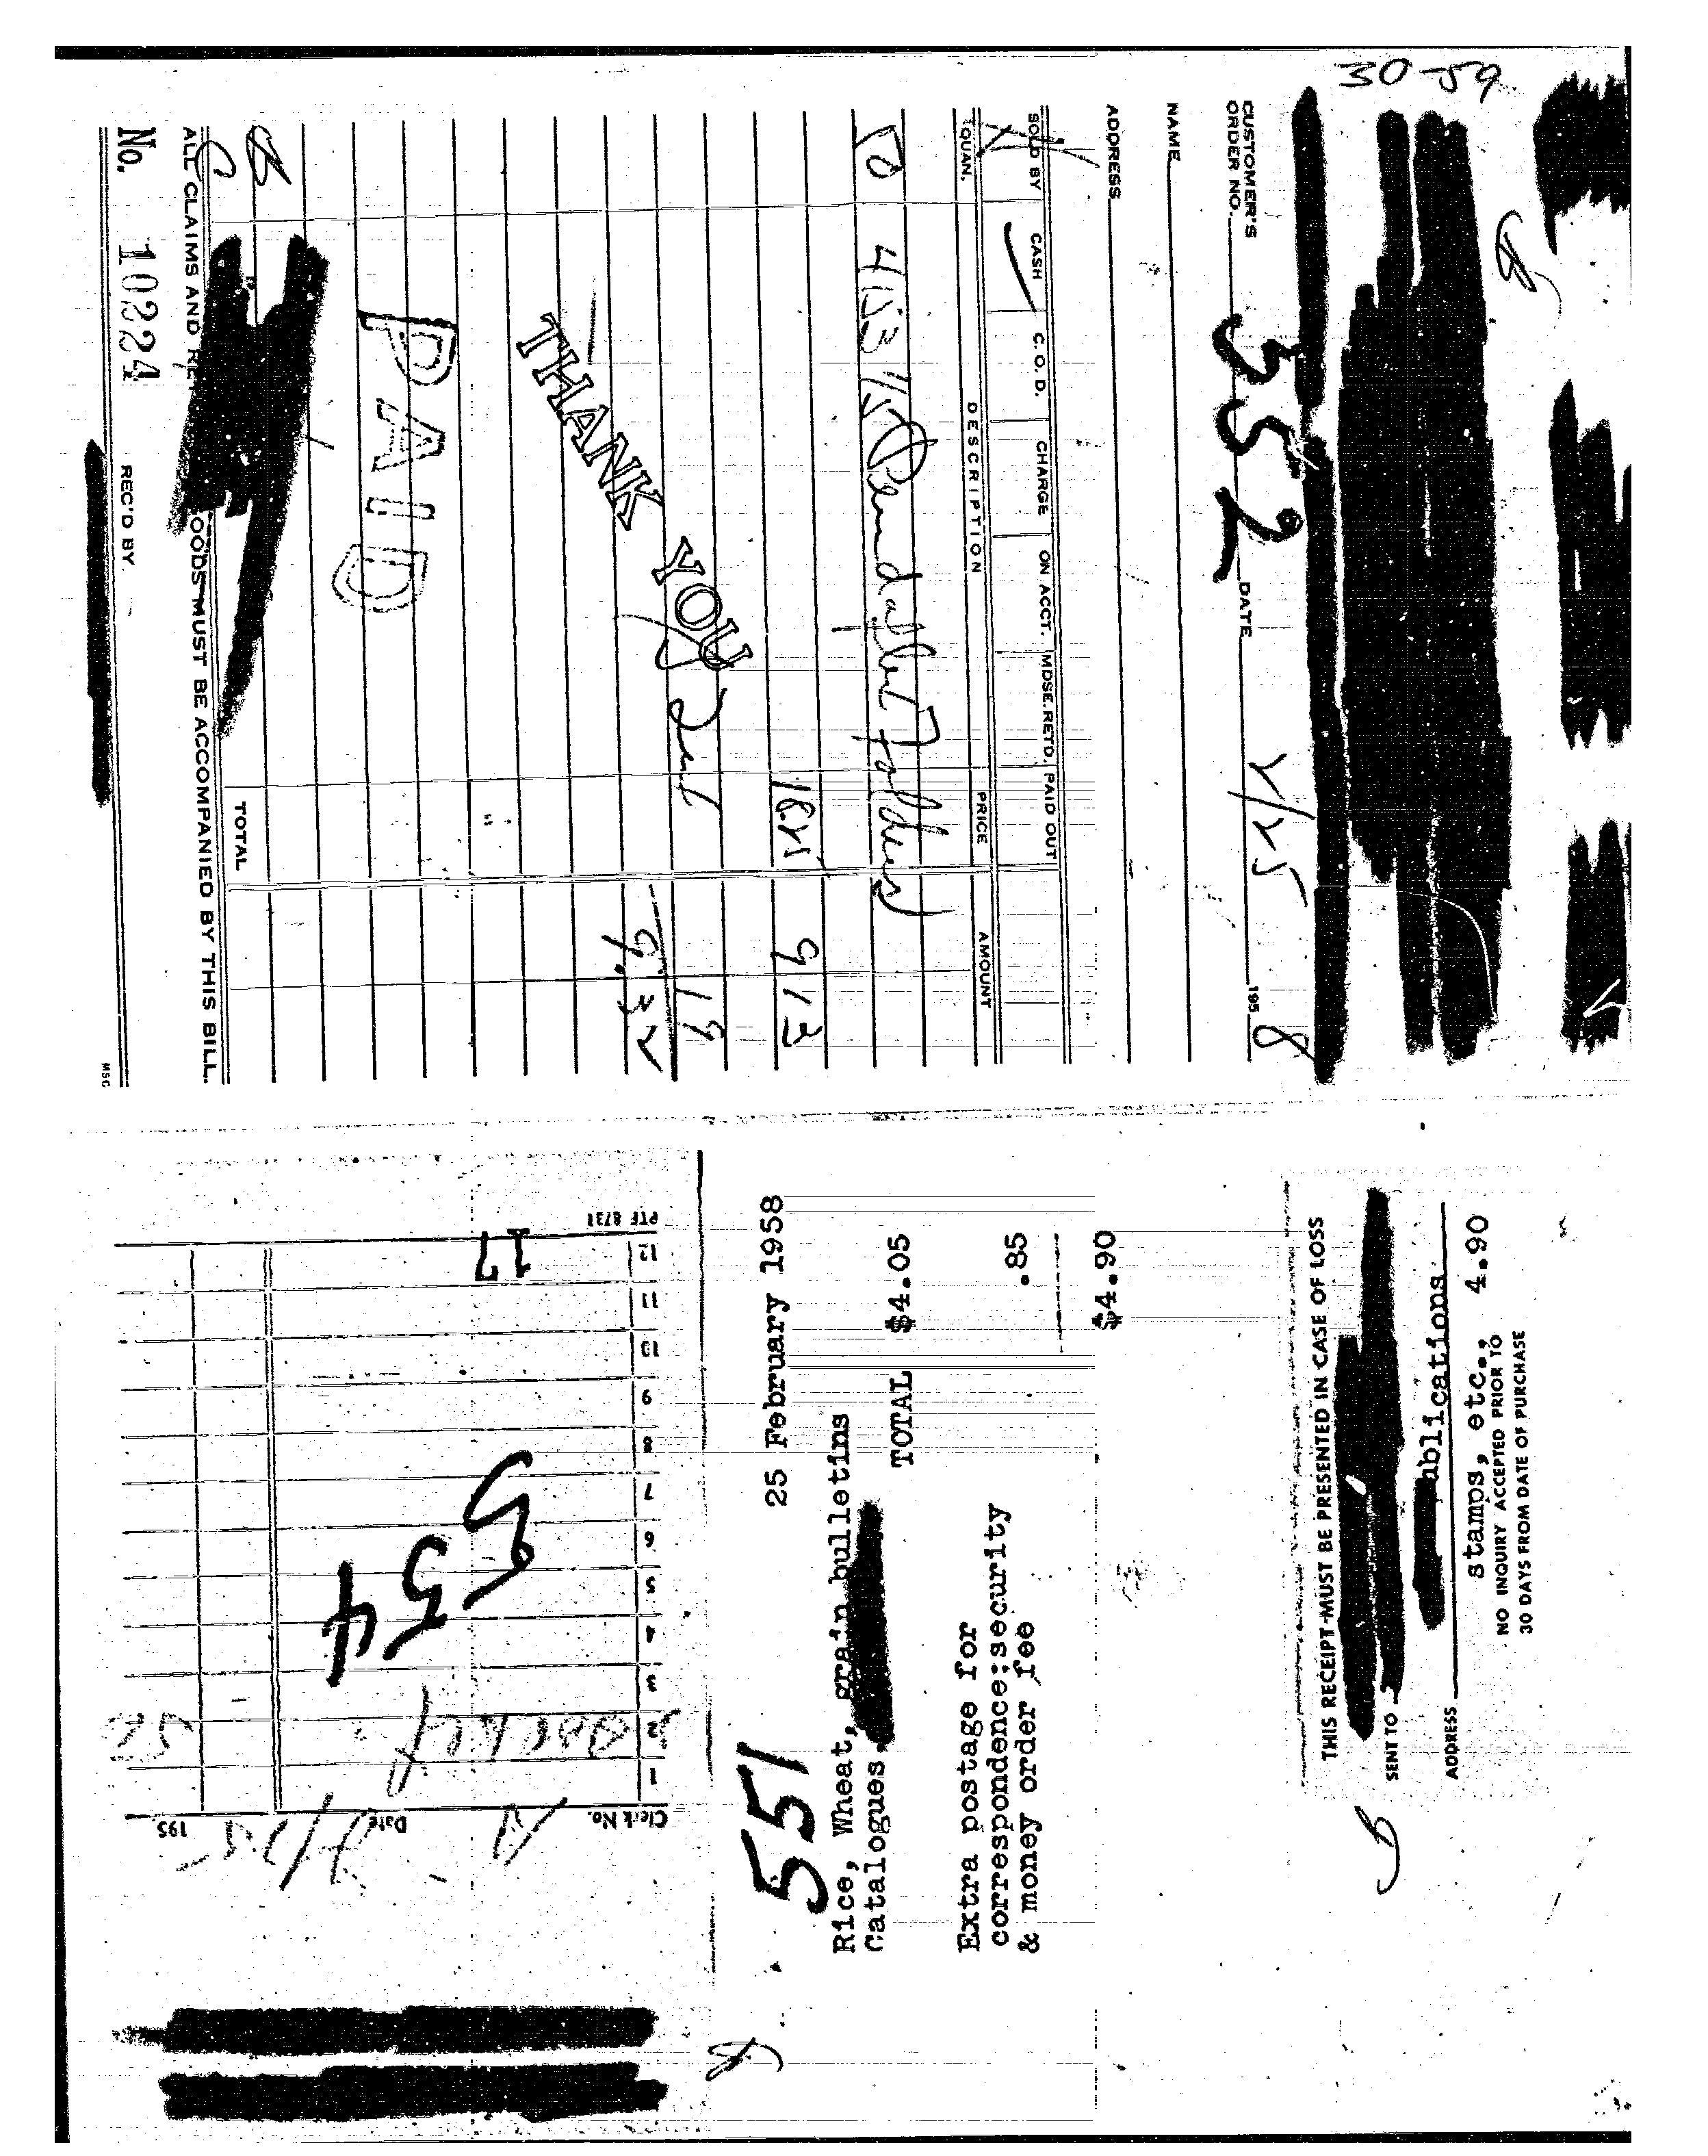 30-59
CUSTOMER'S
ORDER NO.
552
DATE
2/25
195 8
NAME
ADDRESS
SOLD BY
CASH
C. O. D.
CHARGE
ON ACCT.
MDSE. RETD.
PAID OUT
QUAN.
DESCRIPTION
PRICE
AMOUNT
50 4153 1/5 Pendaflex Folders
18.25 9 13
THANK YOU
19
9.32
PAID
TOTAL
ALL CLAIMS AND RE OODS MUST BE ACCOMPANIED BY THIS BILL.
No. 10224 REC'D BY
MSC
Clerk No. Date 195
1
2
3
4
5
6
7
8
9
10
11
12
17
554
PTF 8731
25 February 1958
551
Rice, Wheat, grain bulletins
Catalogues TOTAL $4.05
Extra postage for
correspondence:security
& money order fee .85
$4.90
THIS RECEIPT MUST BE PRESENTED IN CASE OF LOSS
SENT TO
ublications
ADDRESS
stamps, etc., 4.90
NO INQUIRY ACCEPTED PRIOR TO
30 DAYS FROM DATE OF PURCHASE